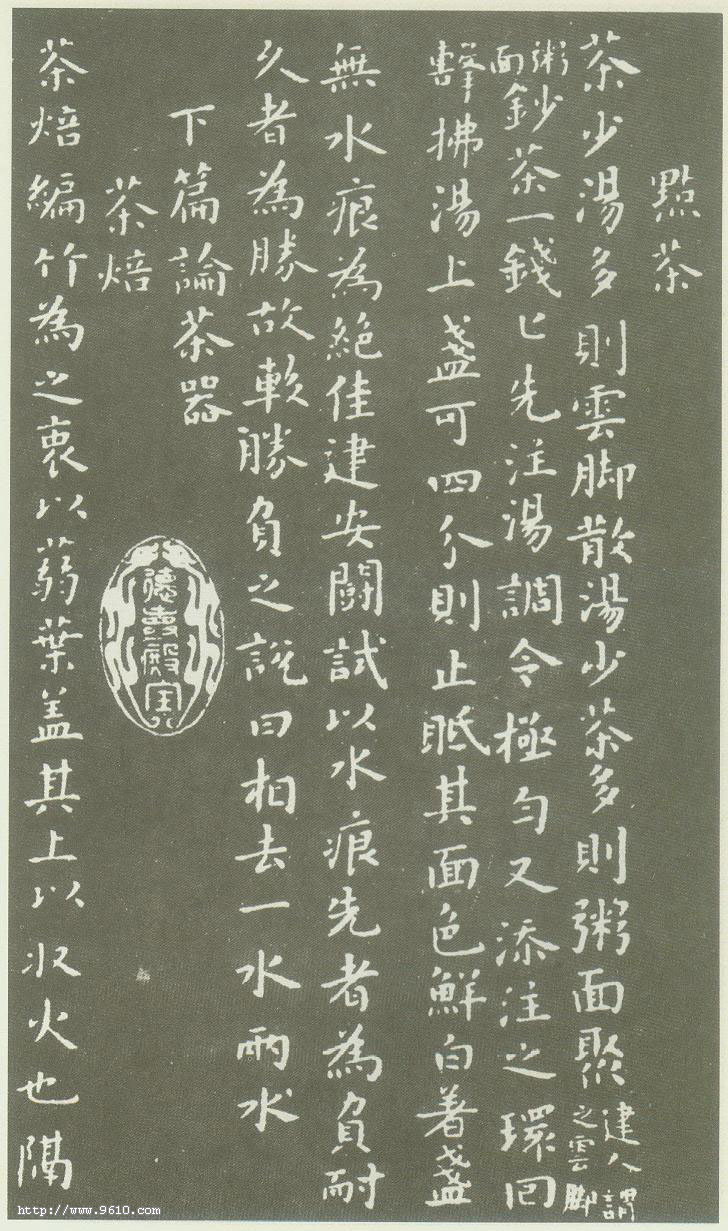 點茶
茶少湯多則雲脚散湯少茶多則粥面聚建人謂之雲脚
粥面鈔茶一錢匕先注湯調令極勻又添注之環回
擊拂湯上盞可四分則止眂其面色鮮白著盞
無水痕為絕佳建安鬪試以水痕先者為負耐
久者為勝故較勝負之說曰相去一水兩水
下篇論茶器
茶焙
茶焙編竹為之裹以蒻葉盖其上以収火也隔
德壽殿寶
http://www.9610.com